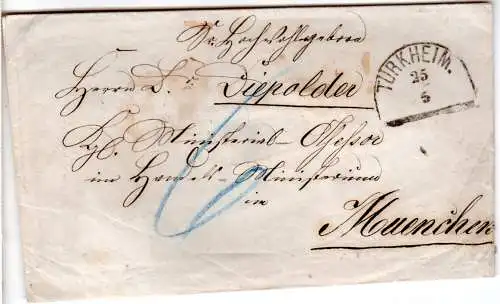 Sr. Hochwohlgeboren
Herrn D. Diepolder
Kgl. Ministerial-Assessor
im Handels-Ministerium
in
Muenchen
TÜRKHEIM.
25
5
6